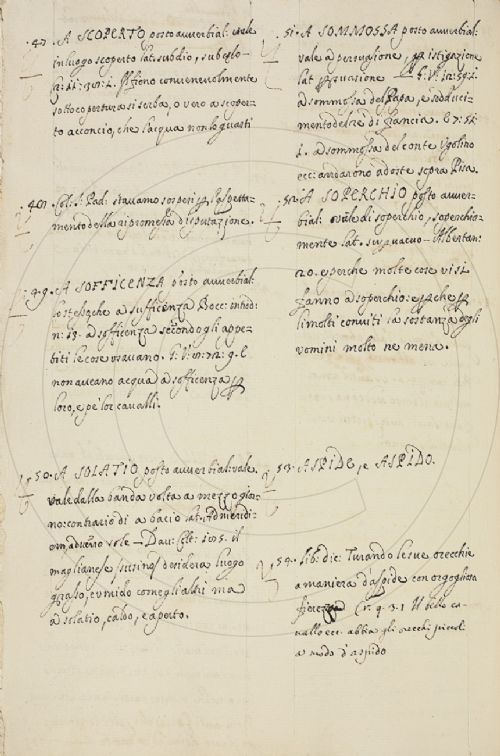 47. A SCOPERTO posto avverbial: vale
in luogo scoperto lat. subdio, sub
convenevolmente
sotto copertura si serba, o vero a scoper-
to acconcio, che l'acqua non lo guasti
stavamo sospesi
mento della ripromessa disputazione.
49. A SOFFICENZA posto avverbial:
lo stesso che a sufficenza Bocc: introd:
n: 53. a sofficenza secondo gli appe-
titi le cose usavano. G. V.
non aveano acqua a sofficenza per
loro, e pe' lor cavalli.
50. A SOLATIO posto avverbial: vale
vale dalla banda volta a mezzo gior-
no: contrario di a bacio lat.
Dav: Colt: 105. il
maglianese susino desidera luogo
grasso, e umido come gli altri ma
a solatio, caldo, e aperto.
51. A SOMMOSSA posto avverbial:
vale a persuasione, per istigazione
lat. persuasione G. V.
a sommossa del Papa, e seduci-
mento del re di Francia.
1. a sommossa del conte Ugolino
ecc: andarono a oste sopra Pisa.
52. A SOPERCHIO posto avver-
bial: vale di soperchio, soperchio-
mente lat. Albertan:
20. e perche molte cose visi
fanno a soperchio: e perche per
li molti conviti la sostanza degli
uomini molto ne mena.
53. ASPIDE, e ASPIDO.
54. Lib: die: Turando le sue orecchie
a maniera d'aspide con orgogliosa
fierezza Cr. 9. 3. 1 Il bello ca-
vallo ecc. abbia gli orecchi piccoli
a modo d'aspido